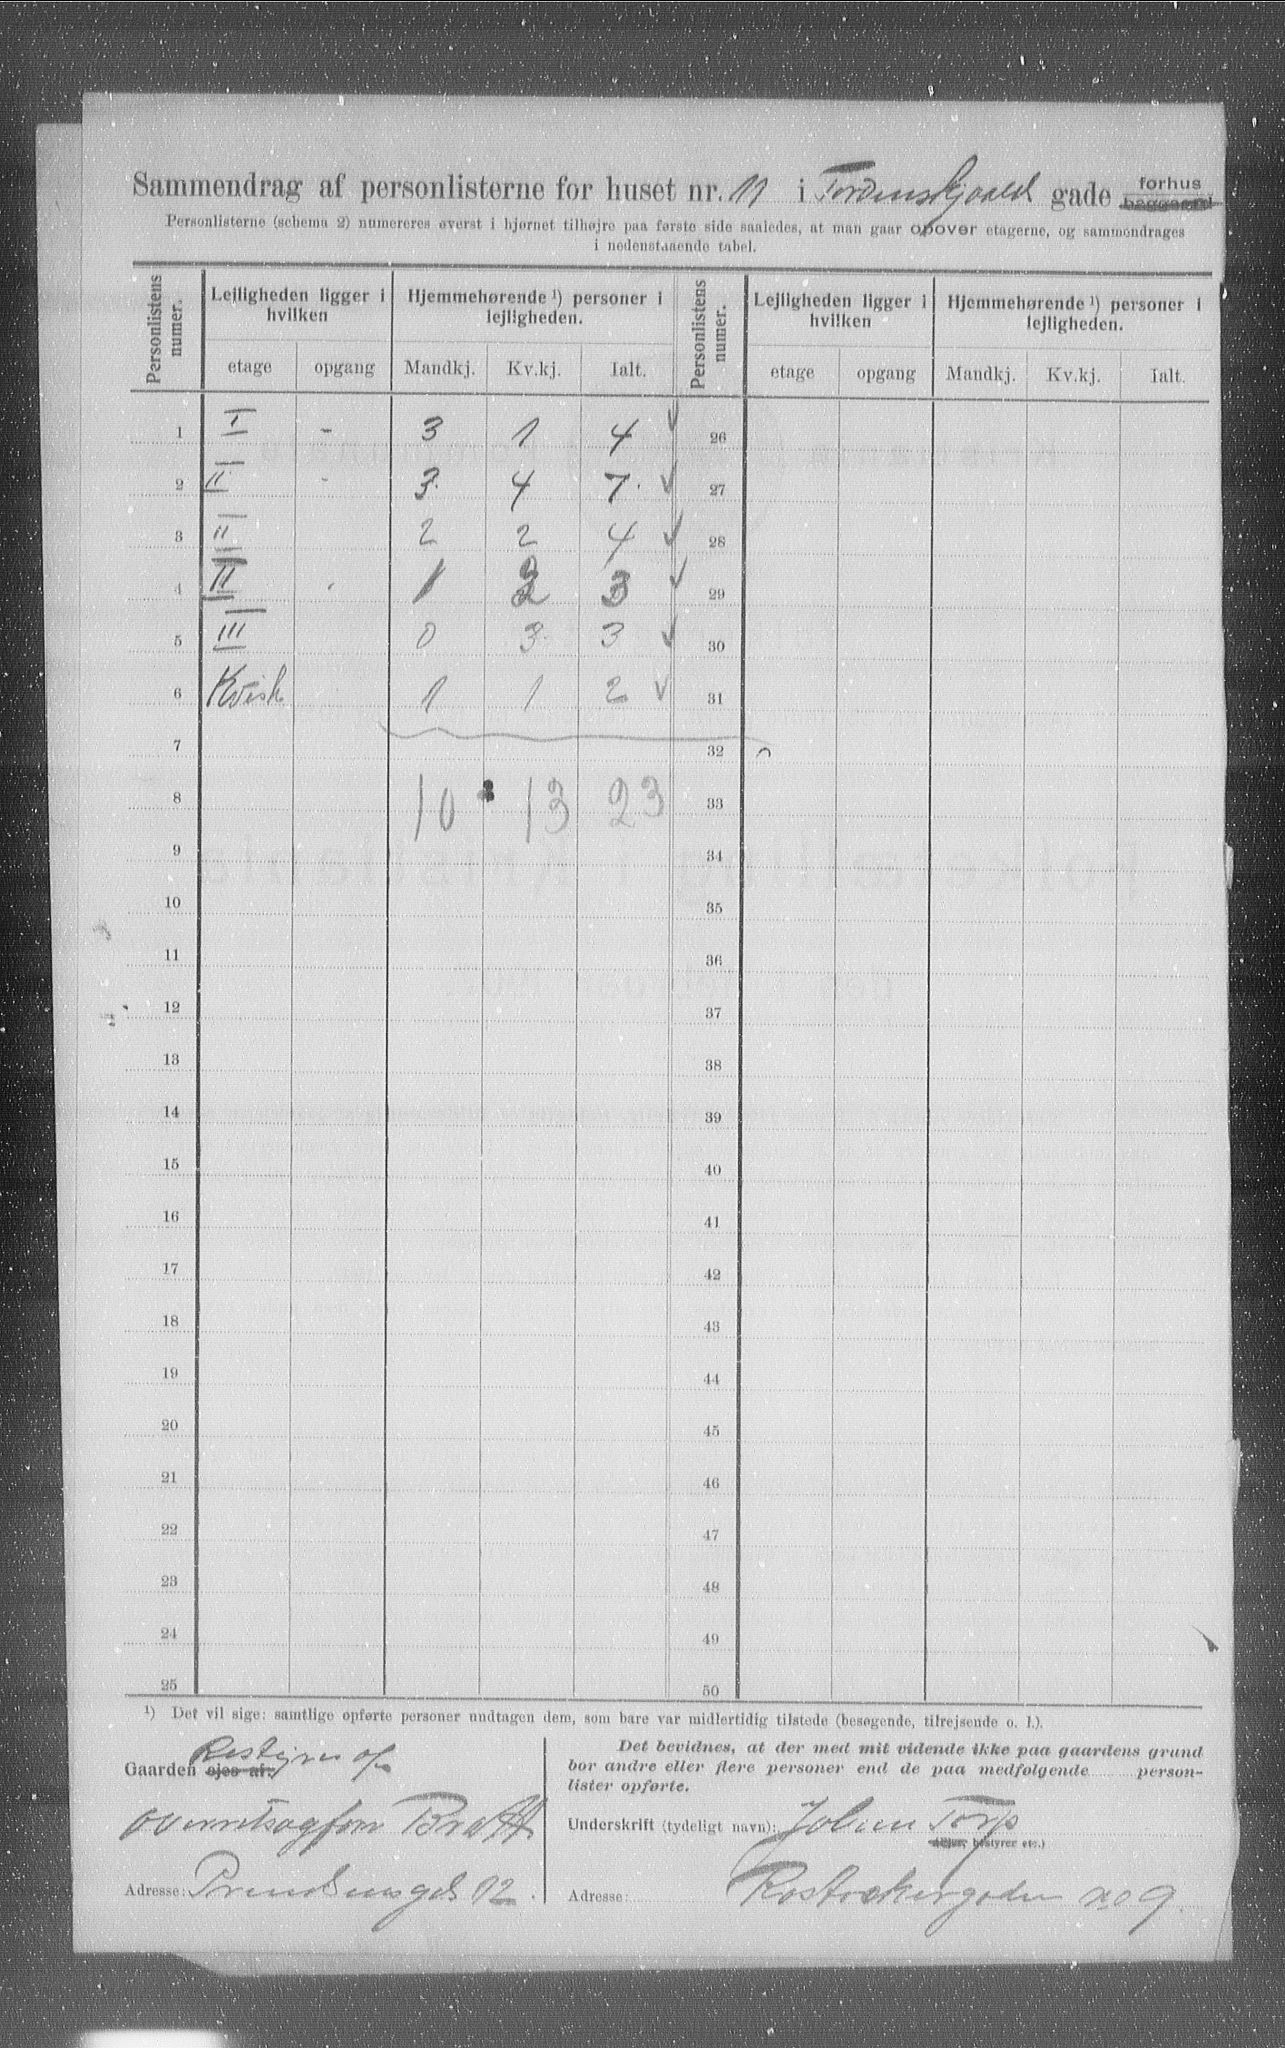 Sammendrag af personlisterne for huset nr. 11 i Tordenskjolds gade forhus baggaard
Personlisterne (schema 2) numereres øverst i hjørnet tilhøjre paa første side saaledes, at man gaar opover etagerne, og sammendrages
i nedenstaaende tabel.
Personlistens numer. Lejligheden ligger i hvilken Hjemmehørende ¹) personer i lejligheden. Personlistens numer. Lejligheden ligger i hvilken Hjemmehørende ¹) personer i lejligheden.
etage opgang Mandkj. Kv.kj. Ialt. etage opgang Mandkj. Kv.kj. Ialt.
1 I - 3 1 4 ✓ 26
2 II - 3 4 7 ✓ 27
3 II 2 2 4 ✓ 28
4 II 1 2 3 ✓ 29
5 III 0 3 3 ✓ 30
6 Kvist 1 1 2 ✓ 31
7 32
8 10 13 23 33
9 34
10 35
11 36
12 37
13 38
14 39
15 40
16 41
17 42
18 43
19 44
20 45
21 46
22 47
23 48
24 49
25 50
¹) Det vil sige: samtlige opførte personer undtagen dem, som bare var midlertidig tilstede (besøgende, tilrejsende o. l.).
Gaarden ejes af: Bestyres af
Det bevidnes, at der med mit vidende ikke paa gaardens grund
bor andre eller flere personer end de paa medfølgende person-
lister opførte.
Bratt
Underskrift (tydeligt navn): Torp
(ejer, bestyrer etc.)
Adresse: 12.
Adresse: no 9.